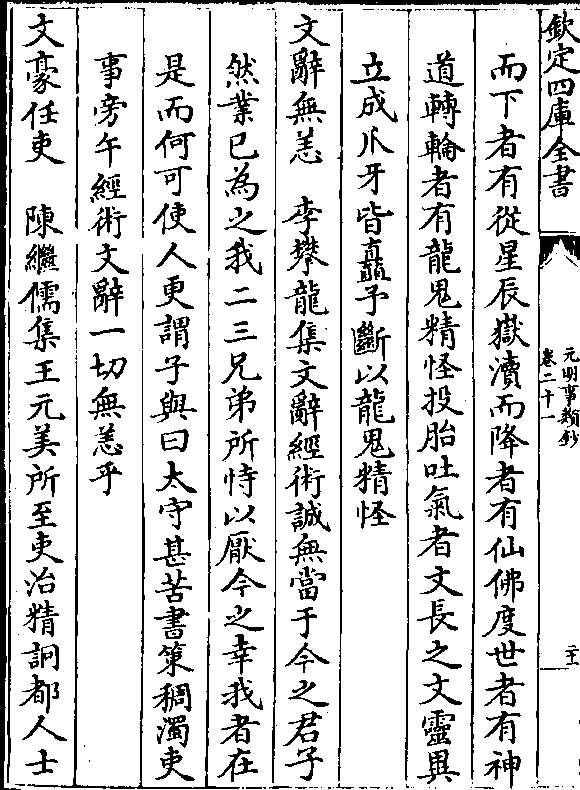 欽定四庫全書
元明事類鈔
卷二十一
而下者有從星辰嶽瀆而降者有仙佛度世者有神
道轉輪者有龍鬼精怪投胎吐氣者文長之文靈異
立成爪牙皆矗予斷以龍鬼精怪
文辭無恙 李攀龍集文辭經術誠無當于今之君子
然業已為之我二三兄弟所恃以厭今之幸我者在
是而何可使人更謂子與曰太守甚苦書策稠濁吏
事旁午經術文辭一切無恙乎
文豪任吏 陳繼儒集王元美所至吏治精詗都人士